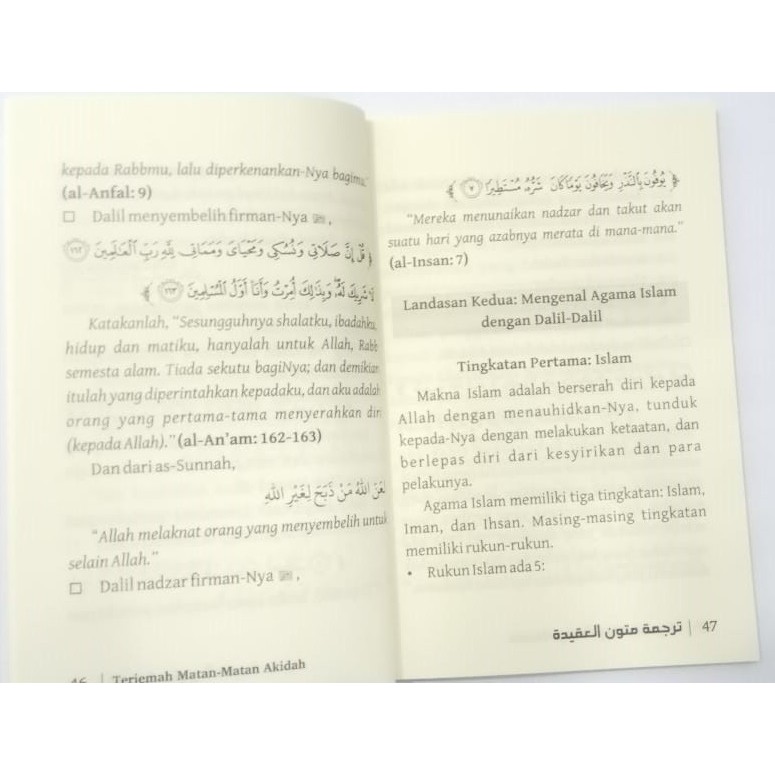 kepada Rabbmu, lalu diperkenankan-Nya bagimu."
(al-Anfal: 9)
☐ Dalil menyembelih firman-Nya ﷻ,
﴿ قُلْ إِنَّ صَلَاتِى وَنُسُكِى وَمَحْيَاىَ وَمَمَاتِى لِلَّهِ رَبِّ الْعَالَمِينَ ١٦٢
لَا شَرِيكَ لَهُۥ وَبِذَٰلِكَ أُمِرْتُ وَأَنَا۠ أَوَّلُ الْمُسْلِمِينَ ١٦٣ ﴾
Katakanlah, "Sesungguhnya shalatku, ibadahku,
hidup dan matiku, hanyalah untuk Allah, Rabb
semesta alam. Tiada sekutu bagiNya; dan demikian
itulah yang diperintahkan kepadaku, dan aku adalah
orang yang pertama-tama menyerahkan diri
(kepada Allah)." (al-An'am: 162-163)
Dan dari as-Sunnah,
لَعَنَ اللهُ مَنْ ذَبَحَ لِغَيْرِ اللهِ
"Allah melaknat orang yang menyembelih untuk
selain Allah."
☐ Dalil nadzar firman-Nya ﷻ,
46 | Terjemah Matan-Matan Akidah
﴿ يُوفُونَ بِالنَّذْرِ وَيَخَافُونَ يَوْمًا كَانَ شَرُّهُۥ مُسْتَطِيرًا ٧ ﴾
"Mereka menunaikan nadzar dan takut akan
suatu hari yang azabnya merata di mana-mana."
(al-Insan: 7)
Landasan Kedua: Mengenal Agama Islam
dengan Dalil-Dalil
Tingkatan Pertama: Islam
Makna Islam adalah berserah diri kepada
Allah dengan menauhidkan-Nya, tunduk
kepada-Nya dengan melakukan ketaatan, dan
berlepas diri dari kesyirikan dan para
pelakunya.
Agama Islam memiliki tiga tingkatan: Islam,
Iman, dan Ihsan. Masing-masing tingkatan
memiliki rukun-rukun.
• Rukun Islam ada 5:
ترجمة متون العقيدة | 47